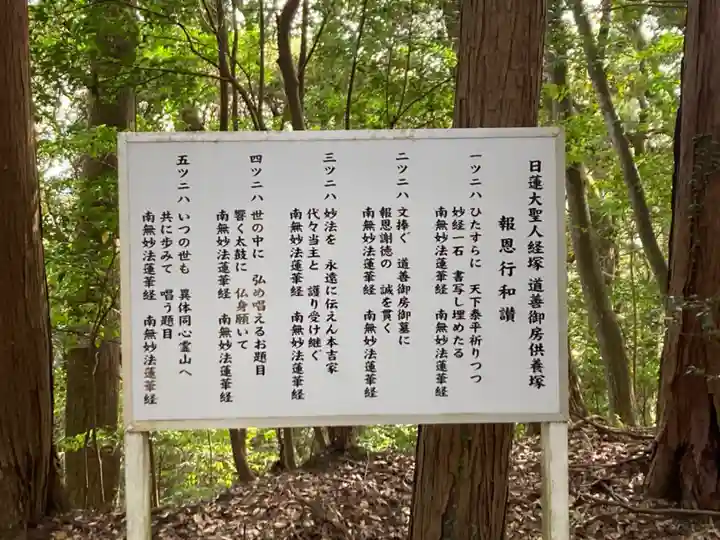 日蓮大聖人経塚 道善御房供養塚
報恩行和讃
一ツニハ ひたすらに 天下泰平祈りつつ
妙経一石 書写し埋めたる
南無妙法蓮華経 南無妙法蓮華経
二ツニハ 文捧ぐ 道善御房御墓に
報恩謝徳の 誠を貫く
南無妙法蓮華経 南無妙法蓮華経
三ツニハ 妙法を 永遠に伝えん本吉家
代々当主と 護り受け継ぐ
南無妙法蓮華経 南無妙法蓮華経
四ツニハ 世の中に 弘め唱えるお題目
響く太鼓に 仏身願いて
南無妙法蓮華経 南無妙法蓮華経
五ツニハ いつの世も 異体同心霊山へ
共に歩みて 唱う題目
南無妙法蓮華経 南無妙法蓮華経